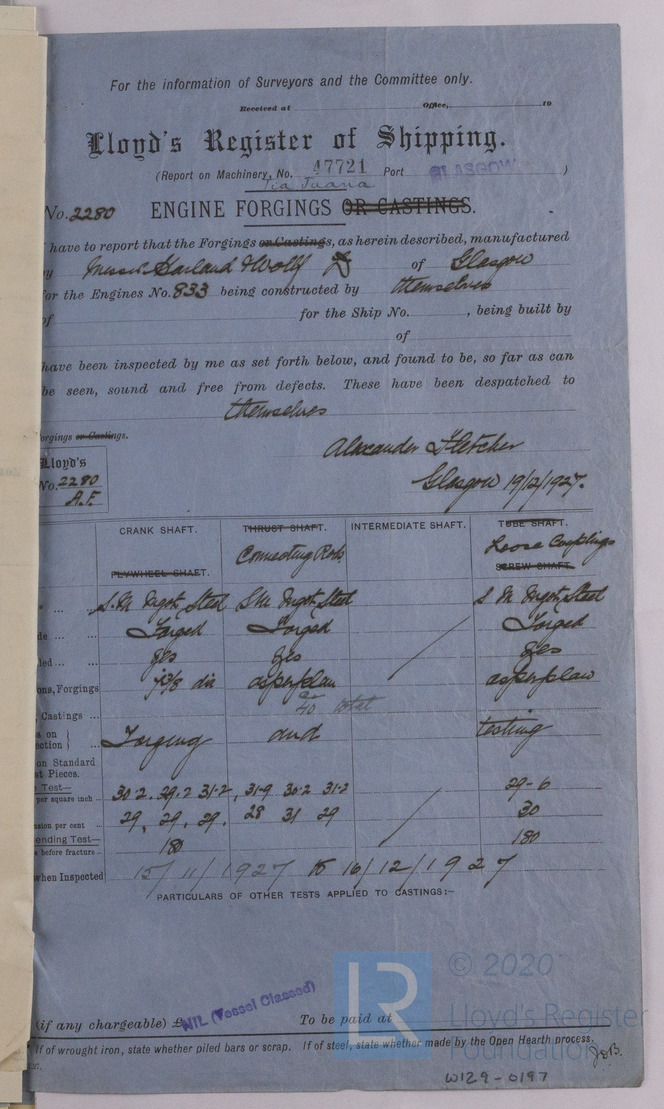 For the information of Surveyors and the Committee only.
Received at Office, 19
Lloyd's Register of Shipping.
(Report on Machinery, No. 47721 Port GLASGOW )
Tia Juana
No. 2280 ENGINE FORGINGS OR CASTINGS.
have to report that the Forgings or Castings, as herein described, manufactured
by Messrs Harland & Wolff of Glasgow
for the Engines No. 833 being constructed by themselves
of for the Ship No. , being built by
of
have been inspected by me as set forth below, and found to be, so far as can
be seen, sound and free from defects. These have been despatched to
themselves
orgings or Castings.
Alexander Fletcher
Lloyd's
No. 2280
A.F.
Glasgow 19/2/1927.
CRANK SHAFT. THRUST SHAFT. INTERMEDIATE SHAFT. TUBE SHAFT.
Connecting Rods Loose Couplings
FLYWHEEL SHAFT. SCREW SHAFT.
S.M Ingot Steel S.M Ingot Steel S M Ingot Steel
de ... Forged Forged Forged
led ... yes yes yes
ons, Forgings dia as per plan as per plan
40 total
, Castings ...
s on
ection } ... Forging and testing
on Standard
st Pieces.
Test—
per square inch 30.2. 29.2 31.2, 31.9 30.2 31.2 29-6
nsion per cent 29, 29, 29. 28 31 29 30
ending Test— 180 180
before fracture
when Inspected 15/11/1927 to 16/12/1927
PARTICULARS OF OTHER TESTS APPLIED TO CASTINGS:—
© 2020
Lloyd's Register
Foundation
(if any chargeable) £ NIL (Vessel Classed) To be paid at
If of wrought iron, state whether piled bars or scrap. If of steel, state whether made by the Open Hearth process.
W129-0197